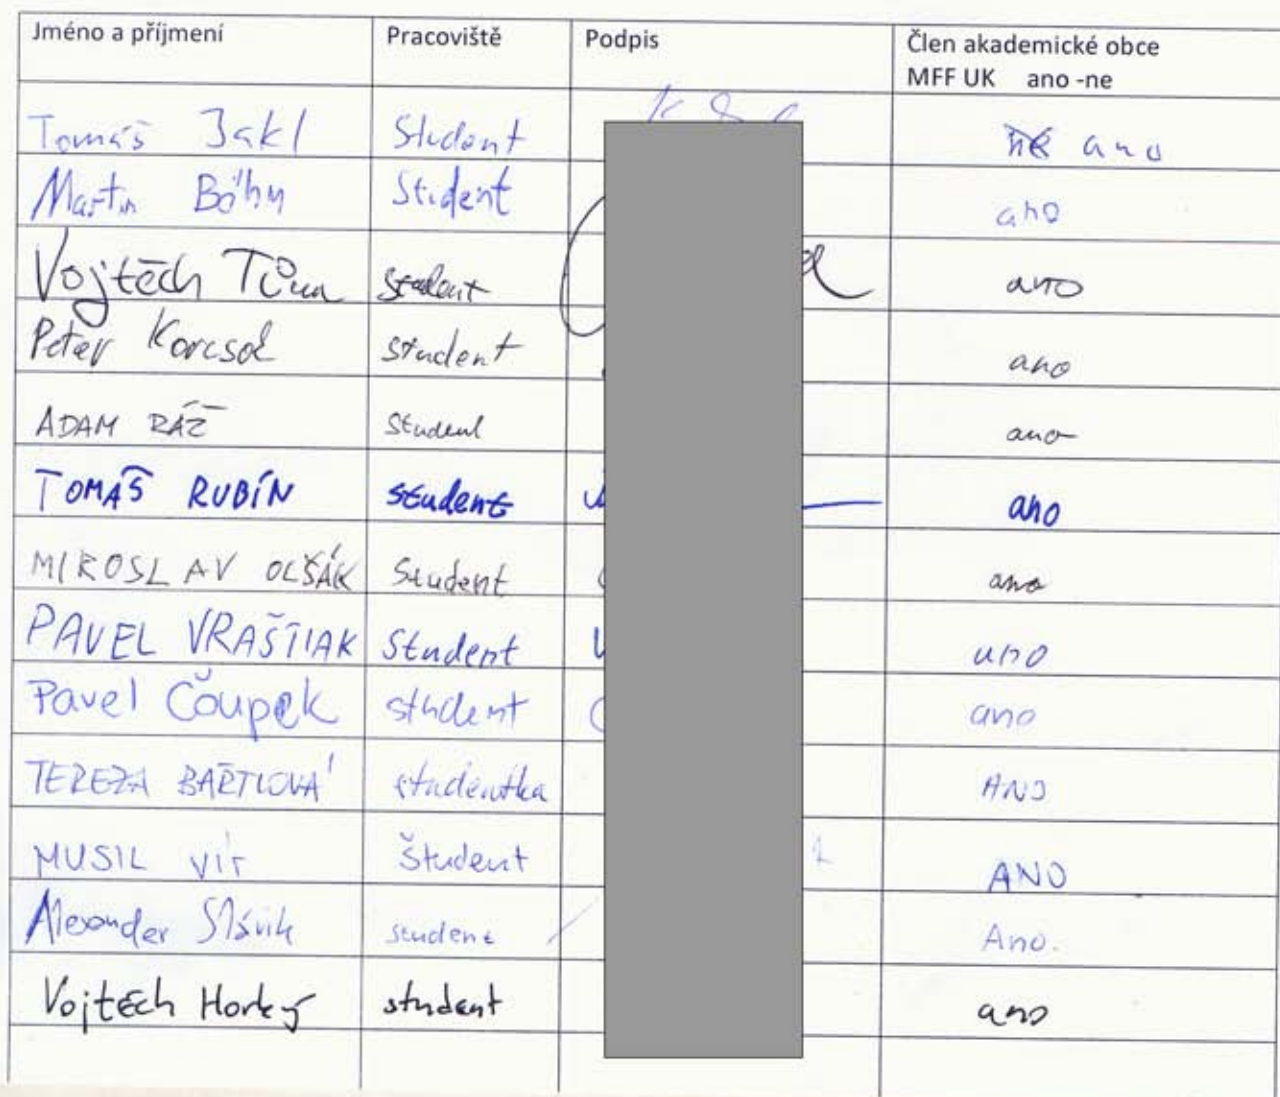 Jméno a příjmení Pracoviště Podpis Člen akademické obce
MFF UK ano -ne
Tomáš Jakl Student ne ano
Martin Böhm Student ano
Vojtěch Tůma student ano
Peter Korcsok student ano
ADAM RÁŽ Student ano
TOMÁŠ RUBÍN student ano
MIROSLAV OLŠÁK Student ano
PAVEL VRAŠTIAK Student ano
Pavel Čoupek student ano
TEREZA BARTLOVÁ studentka ANO
MUSIL VÍT Študent ANO
Alexander Slávik student Ano.
Vojtěch Horký student ano